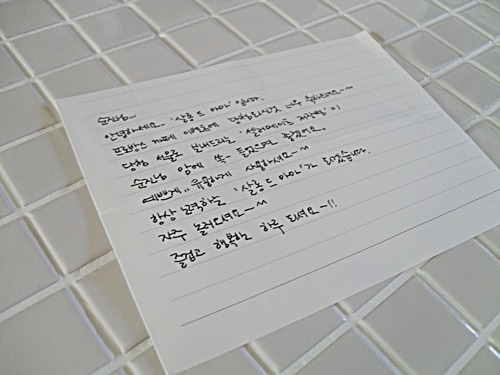 순진님..
안녕하세요.. '살롱 드 아마' 입니다.
프로방스 카페 이벤트에 당첨되신것 너무 축하드려요~
당첨 선물로 보내드리는 '셀러메이드 저장병'이
순진님 맘에 쏙~ 들었으면 좋겠어요.
예쁘게.. 유용하게 사용하세요~
항상 노력하는 '살롱 드 아마'가 되겠습니다.
자주 놀러오세요~
즐겁고 행복한 하루 되세요~!!